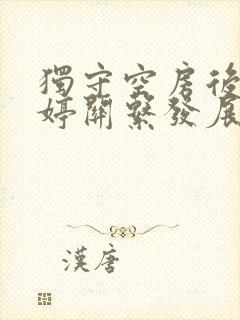 獨守空房後
婷關繫發展
漢唐